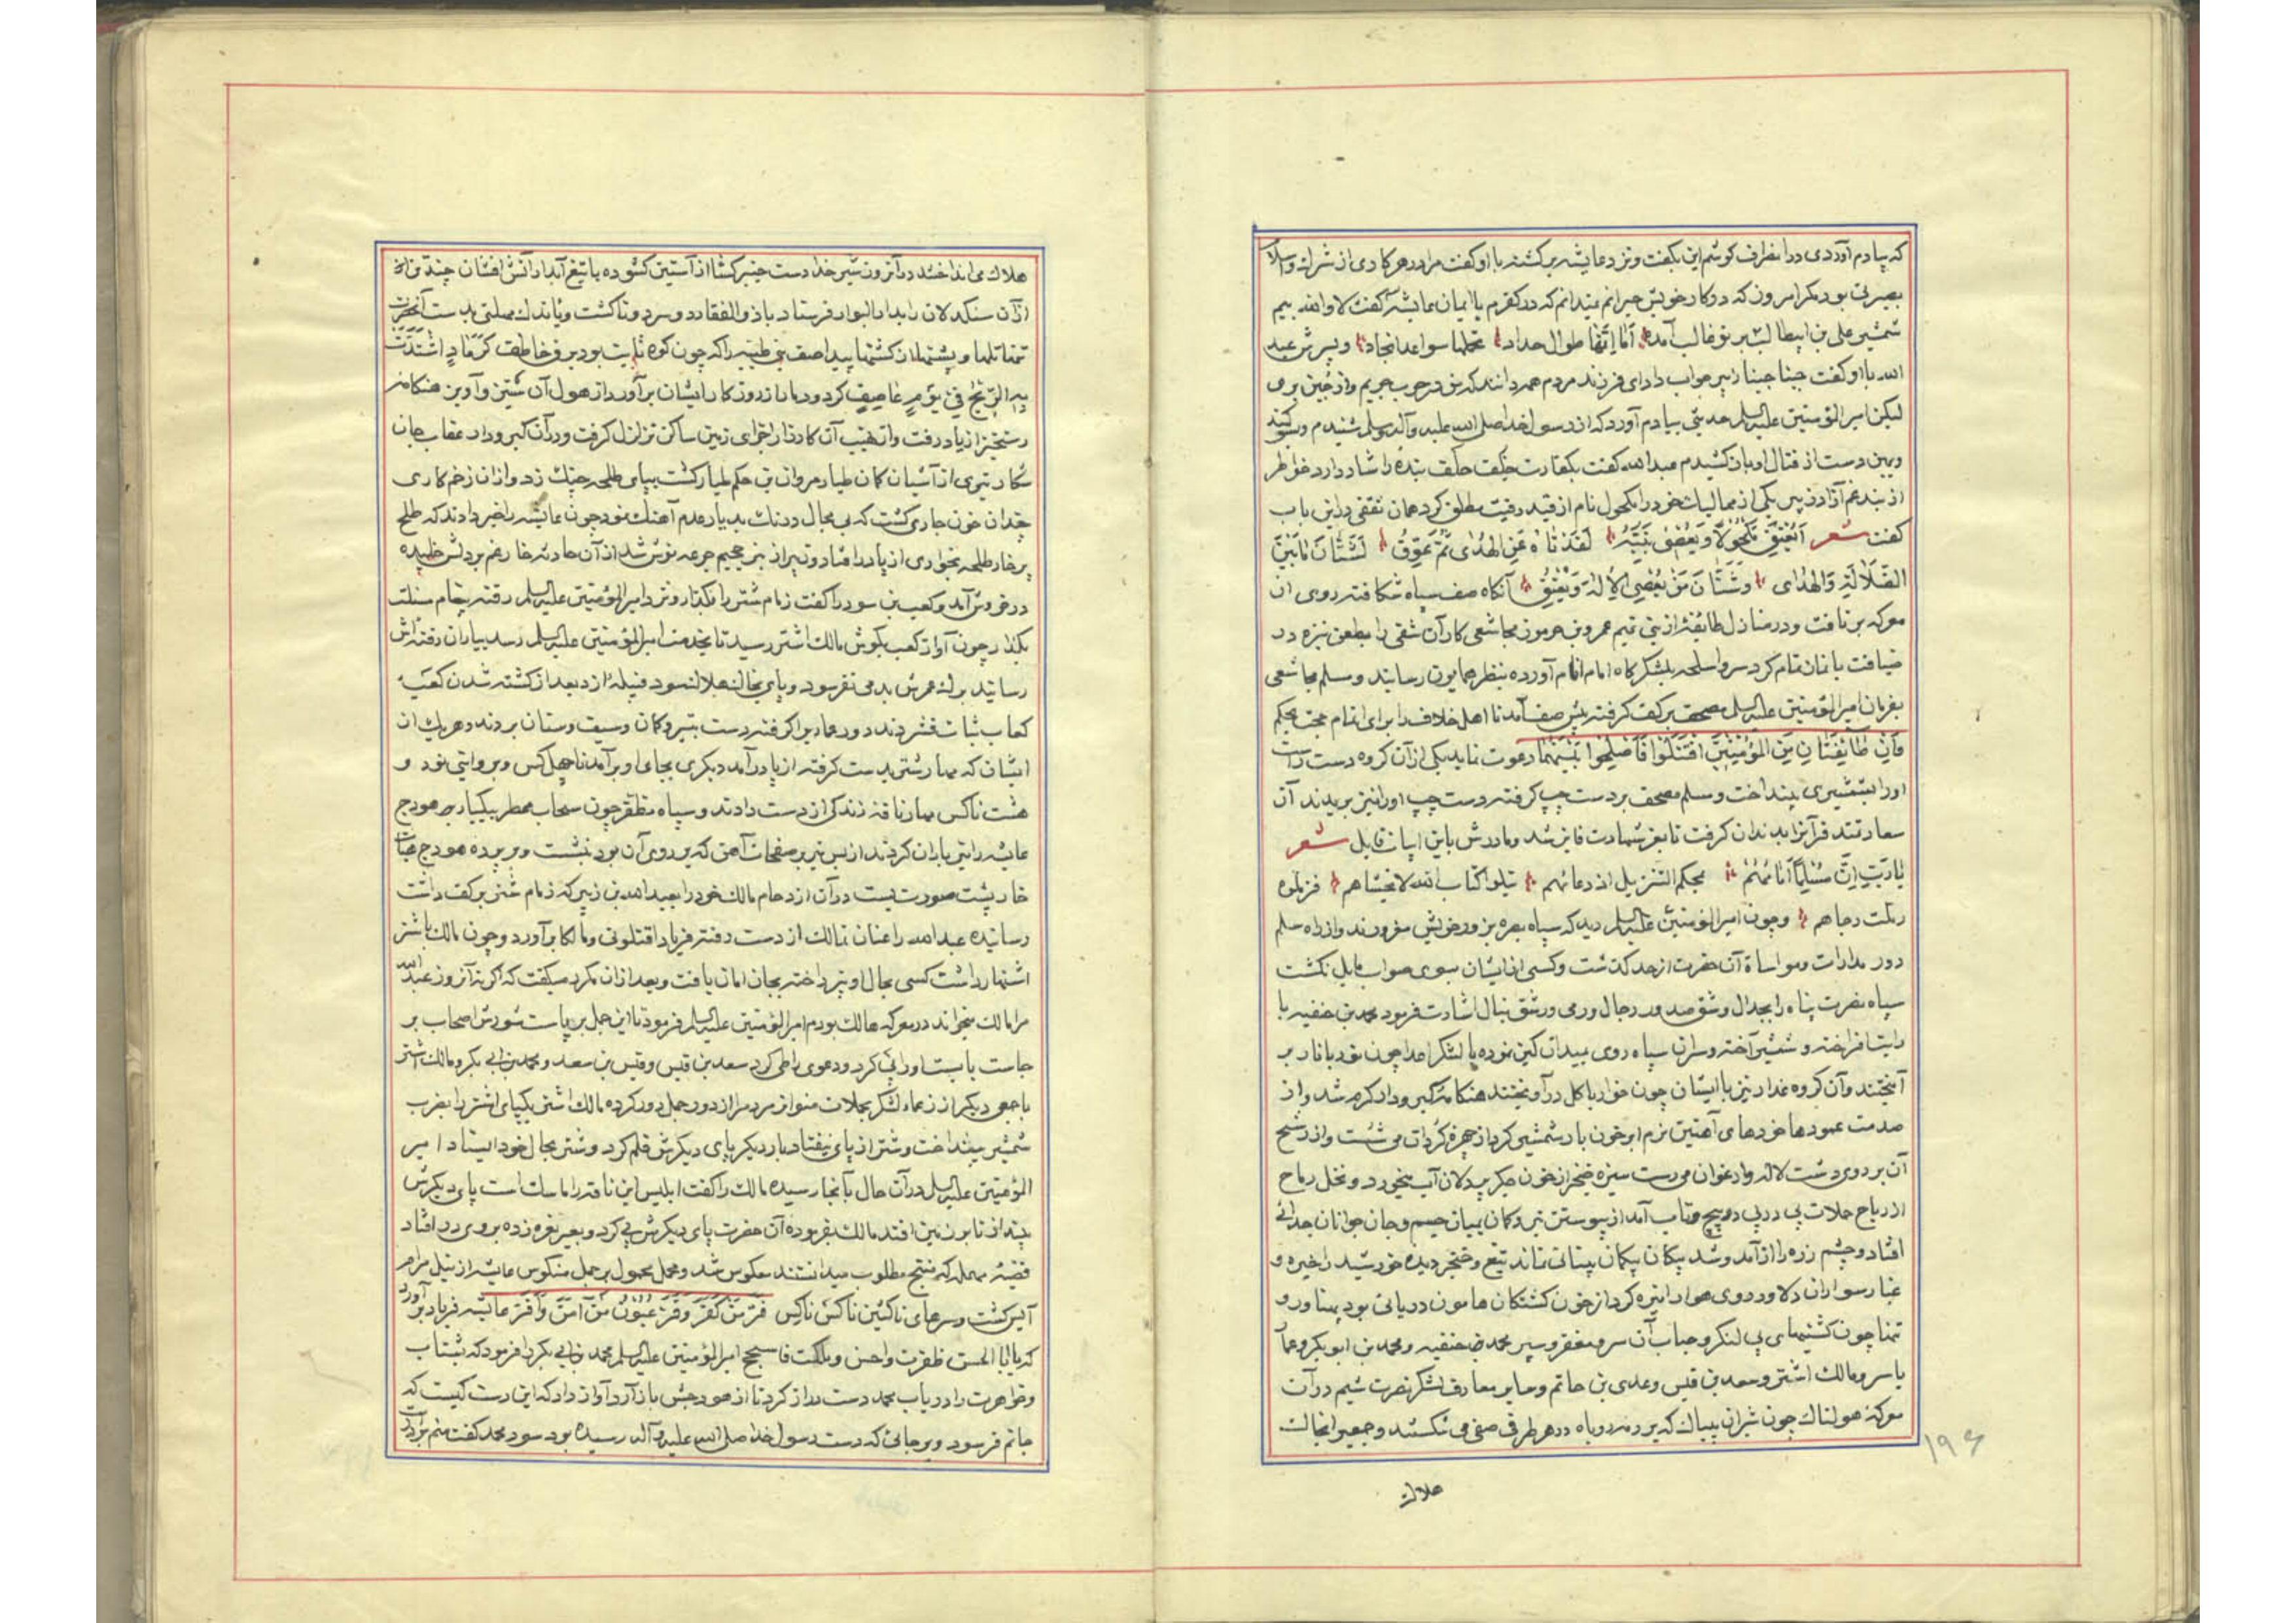 که بیادم آوردی در انظرف کوشم این بکفت ونزد عایشه برکشته با او کفت مرا در هر کاری از شرک و اسلام
بصیرتی بود مکر امروز که در کار خویش حیرانم نمیدانم که در کفرم یا ایمان عایشه کفت لا والله بیم
شمشیر علی بن ابیطالب بر تو غالب آمده أما إنها طوال حداد تحملها سواعد انجاد وپسرش عبد
الله با او کفت جبنا جبنا زبیر جواب داد ای فرزند مردم همه دانند که من در حرب جریم واز جبن بری
لیکن امیر المؤمنین علیه السلم حدیثی بیادم آورد که از رسول خدا صلی الله علیه وآله وسلم شنیدم وسوکند
ومن دست از قتال او باز کشیدم عبد الله کفت بکفارت حلف بنده را شاد دار خواطر
از بند غم آزاد زبیر یکی از ممالیک خود را مکحول نام از قید رقیت مطلق کرد همان ثقفی در این باب
کفت شعر أیعتق مکحولا ویعصی نبیه لقد تاه عن الهدی ثم عوق لشتان ما بین
الضلالة والهدی وشتان من یعصی الإله ویعتق آنکاه صف سپاه شکافته روی از
معرکه برتافت ودر منازل طایفه از بنی تمیم عمرو بن جرموز مجاشعی کار آن شقی را بطعن نیزه در
ضیافت با نان تمام کرد سر واسلحه بلشکرکاه امام انام آورده بنظر همایون رسانید ومسلم مجاشعی
بفرمان امیر المؤمنین علیه السلم مصحف بر کف کرفته پیش صف آمد تا اهل خلاف را برای اتمام حجت بحکم
فإن طائفتان من المؤمنین اقتتلوا فأصلحوا بینهما دعوت نماید یکی از آن کروه دست راست
اورا بشمشیری بینداخت ومسلم مصحف بر دست چپ کرفته دست چپ اورا نیز بریدند آن
سعادتمند قرآنرا بدندان کرفت تا بفوز شهادت فایز شد ومادرش باین ابیات قایل شعر
یا رب إن مسلما أتاهم بمحکم التنزیل اذ دعاهم یتلوا کتاب الله لا یخشاهم فزملوه
رملت لحاهم وچون امیر المؤمنین علیه السلم دید که سپاه بصره بزور خویش مغرورند واز راه سلم
دور مدارات ومواساة آن حضرت از حد کذشت وکسی از ایشان بسوی صواب مایل نکشت
سپاه نصرت پناه را بجدال وشق صدور رجال ورمی ورشق نبال اشارت فرمود محمد بن حنفیه با
رایت افراخته وشمشیر آخته وسران سپاه روی بمیدان کین نموده با لشکر اعدا چون نور با نار بر
آمیختند وآن کروه غدار نیز با ایشان چون خار با کل در آویختند هنکامه کیر ودار کرم شد واز
صدمت عمودها خودهای آهنین نرم ابر خون بار شمشیر کرد از چهره کردان می شست واز رشح
آن بر روی دشت لاله وارغوان می رست سبزه خنجر از خون جکر پردلان آب میخورد ونخل رماح
از ریاح حملات پی در پی در پیچ وتاب آمد از پیوستن تیر وکمان بمیان جسم وجان جوانان جدائی
افتاد وچشم زره را از آمد وشد پیکان پیکان بینائی نماند تیغ وخنجر دیده خورشید را خیره و
غبار سواران دلاور روی هوا را تیره کرد از خون کشتکان هامون دریائی بود پهناور و
تنها چون کشتیهای بی لنکر وحباب آن سر ومغفر وسپر محمد بن حنفیه ومحمد بن ابو بکر وعمار
یاسر ومالک اشتر وسعد بن قیس وعدی بن حاتم وسایر معارف لشکر نصرت شیم در آن
معرکهٔ هولناک چون شیران بیباک که بر رمه روباه در هر طرف صفی می شکستند وجمعی را بخاک
هلاک
۱۹۶
هلاک می انداختند در آنروز شیر خدا دست خیبر کشا از آستین کشوده با تیغ آبدار آتش افشان چندین از
از آن سنکدلان را بدار البوار فرستاد باذو الفقار دو سر دوتا کشت وباندک مهلتی بدست آنحضرت
تنها تلها وپشتها از کشتها پیدا صف بنی ضبه را که چون کوه ثابت بود ببرق خاطف کرماد اشتدت
به الریح فی یوم عاصف کرد ودمار از روزکار ایشان برآورد از هول آن ستیز وآویز هنکامه
رستخیز از یاد رفت واز نهیب آن کارزار اجزای زمین ساکن تزلزل کرفت ودر آن کیر ودار عقاب جان
شکار تیری از آشیان کمان طیار مروان بن حکم طیار کشت بپای طلحه چنک زد واز ان زخم کاری
چندان خون جاری کشت که بی مجال درنک بدیار عدم آهنک نمود چون عایشه را خبر دادند که طلح
پر خار طلحه بخواری از پا در افتاد وزبیر از بئر جحیم جرعه نوش شد از آن حادثه خار غم بر دلش خلیده
در خروش آمد وکعب بن سور را کفت زمام شتر را بکذار ونزد امیر المؤمنین علیه السلم رفته پیام مسئلت
بکذار چون آواز کعب بکوش مالک اشتر رسید تا بخدمت امیر المؤمنین علیه السلم رسد بیاران رفته اش
رسانید برک عمرش بدمی نفرسود وپای بخاک هلاک نسود قبیلهٔ ازد بعد از کشته شدن کعب
کعاب ثبات فشردند دور عماریرا کرفته دست بتیر وکمان وسیف وسنان بردند وهر یک از
ایشان که مهار شتر بدست کرفته از پا در آمد دیکری بجای او بر آمد تا چهل کس وبروایتی نود و
هشت ناکس مهار ناقه زندکی از دست دادند وسپاه مظفر چون سحاب ممطر بیکبار بر هودج
عایشه را تیر باران کردند از بس تیر بر صفحات آهن که بر روی آن بود نشست وپر برده هودج هیأت
خار پشت صورت بست در آن ازدحام مالک خود را بعبد الله بن زبیر که زمام شتر بر کف داشت
رسانیده عبد الله را عنان تمالک از دست رفته فریاد اقتلونی ومالکا برآورد وچون مالک باشتر
اشتهار داشت کسی بحال او نپرداخته بجان امان یافت وبعد از ان مکرر میکفت که اکر نه آنروز عبد الله
مرا مالک میخواند در معرکه هالک بودم امیر المؤمنین علیه السلم فرمود تا این جمل بر پاست شورش اصحاب بر
جاست بایست اورا پی کرد ودعوی را طی کرد سعد بن قیس وقیس بن سعد ومحمد بن ابی بکر ومالک اشتر
با جمعی دیکر از زعماء لشکر بحملات متواتر مردم را از دور جمل دور کرده مالک اشتر یکپای اشتر را بضرب
شمشیر بینداخت وشتر از پای نیفتاد بار دیکر پای دیکرش قلم کرد وشتر بحال خود ایستاد امیر
المؤمنین علیه السلم در آن حال بآنجا رسیده مالک را کفت ابلیس این ناقه را ماسک است پای دیکرش
بینداز تا بزمین افتد مالک بفرموده آن حضرت پای دیکرش پی کرد وبعیر نعره زده بروی در افتاد
قضیهٔ مهمله که منتج مطلوب میدانستند معکوس شد ومحمل محمول بر جمل منکوس عایشه از نیل مرام
آیس کشت وسرهای ناکثین ناکس ناکس فر من کفر وقر عیون من آمن وأقر عایشه فریاد بر آورد
که یا ابا الحسن ظفرت واحسن وملکت فاسجح امیر المؤمنین علیه السلم محمد بن ابی بکر را فرمود که بشتاب
وخواهرت را دریاب محمد دست دراز کرد تا از هودجش باز آرد آواز داد که این دست کیست که
جایم فرسود وبر جائی که دست رسول خدا صلی الله علیه وآله رسیده بود سود محمد کفت منم برادرت